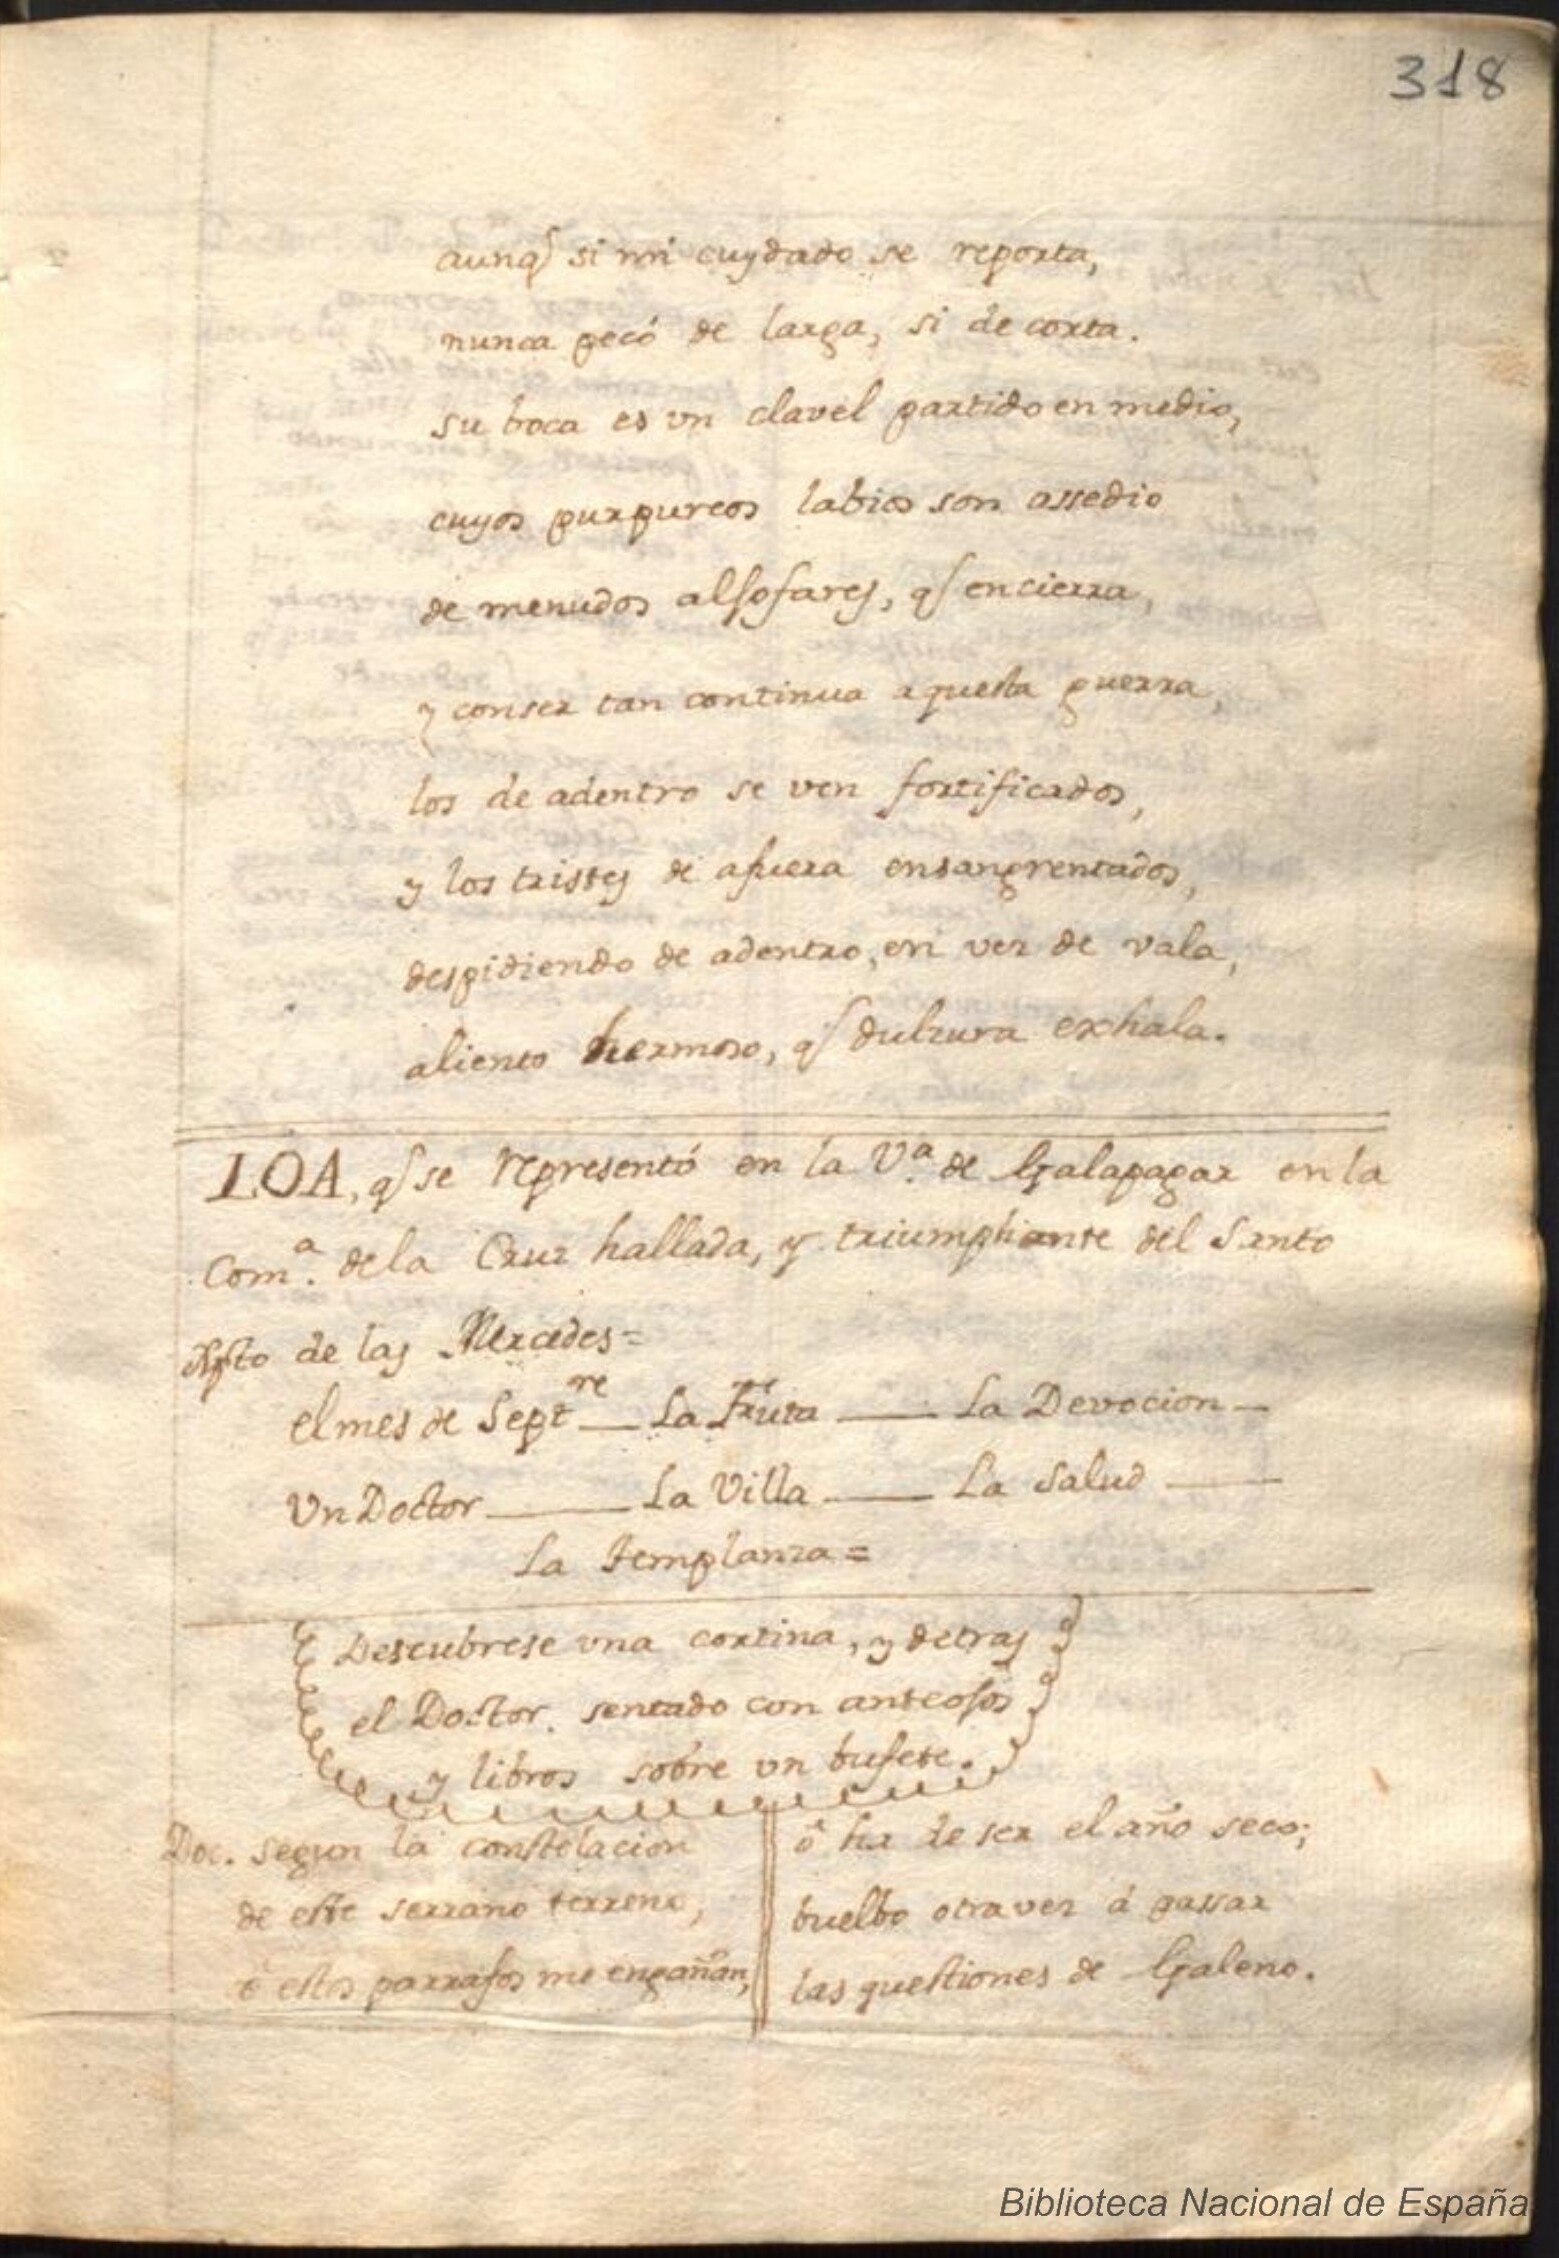 318
aunq̃ si mi cuydado se reporta,
nunca pecó de larga, si de corta.
su boca es vn clavel partido en medio,
cuyos purpureos labios son assedio
de menudos aljofares, q̃ encierra,
y conser tan continua aquesta guerra,
los de adentro se ven fortificados,
y los tristes de afuera ensangrentados,
despidiendo de adentro, en vez de vala,
aliento hermoso, q̃ dulzura exhala.
LOA, q̃ se representó en la V.ª de Galapagar en la
Com.ª dela Cruz hallada, y triumphante del Santo
Xpto de las Mercedes=
el mes de Septre — La Fruta — La Devocion —
Vn Doctor — La Villa — La Salud —
La templanza =
Descubrese vna cortina, y detras
el Doctor sentado con anteojos
y libros sobre vn bufete.
Doc. segun la constelacion
de este serrano terreno,
ô estos parrafos me engañan,
ô ha de ser el año seco;
buelbo otra vez á passar
las questiones de Galeno.
Biblioteca Nacional de España